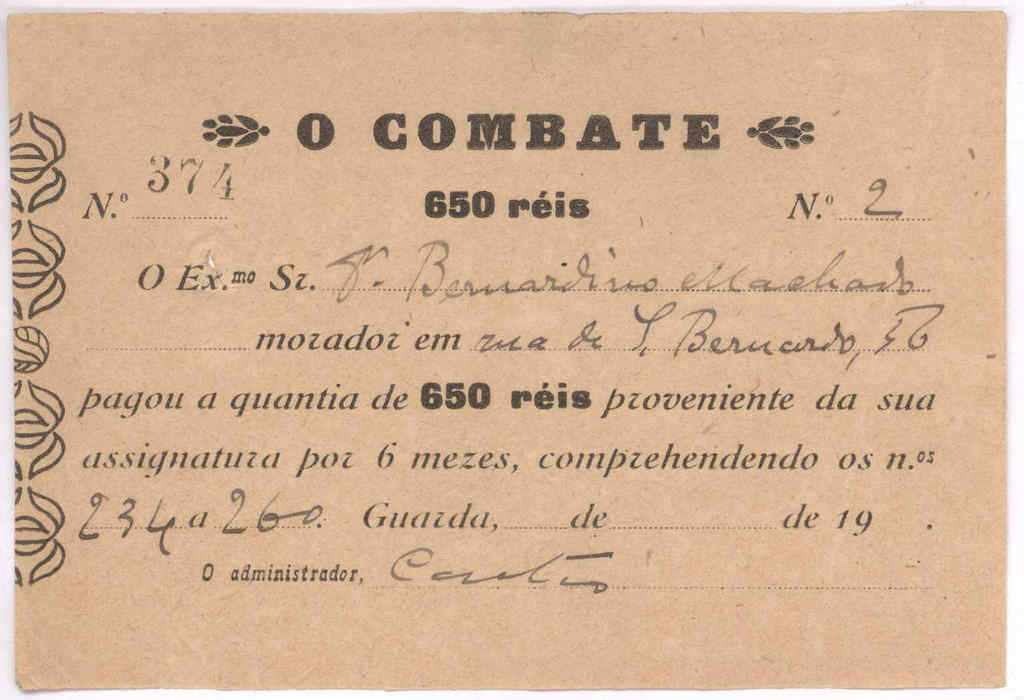 O COMBATE
N.º 374 650 réis N.º 2
O Ex.mo Sr. Dr. Bernardino Machado
morador em rua de S. Bernardo, 56
pagou a quantia de 650 réis proveniente da sua
assignatura por 6 mezes, comprehendendo os n.os
234 a 260. Guarda, de de 19 .
O administrador,